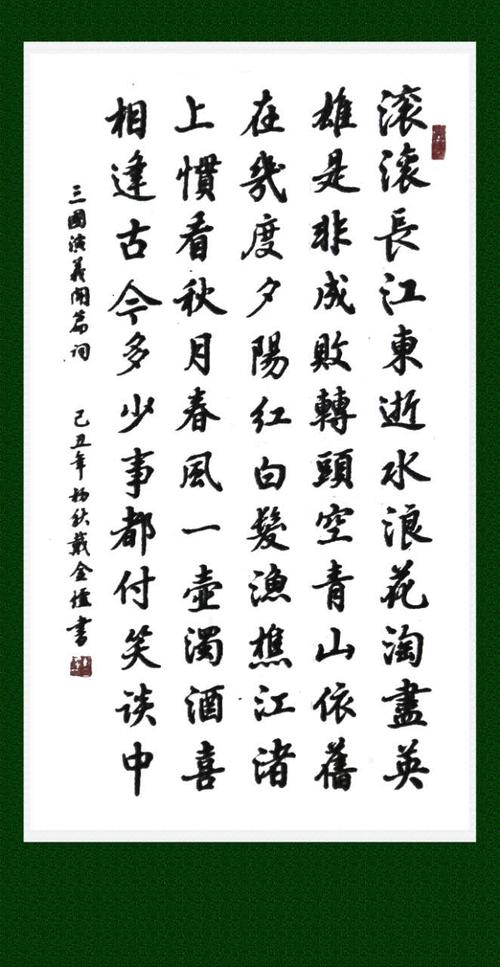 滚滚長江東逝水浪花淘盡英
雄是非成敗轉頭空青山依舊
在幾度夕陽红白髮漁樵江渚
上慣看秋月春風一壺濁酒喜
相逢古今多少事都付笑谈中
三國演義開篇词 己丑年 秋戴金 書